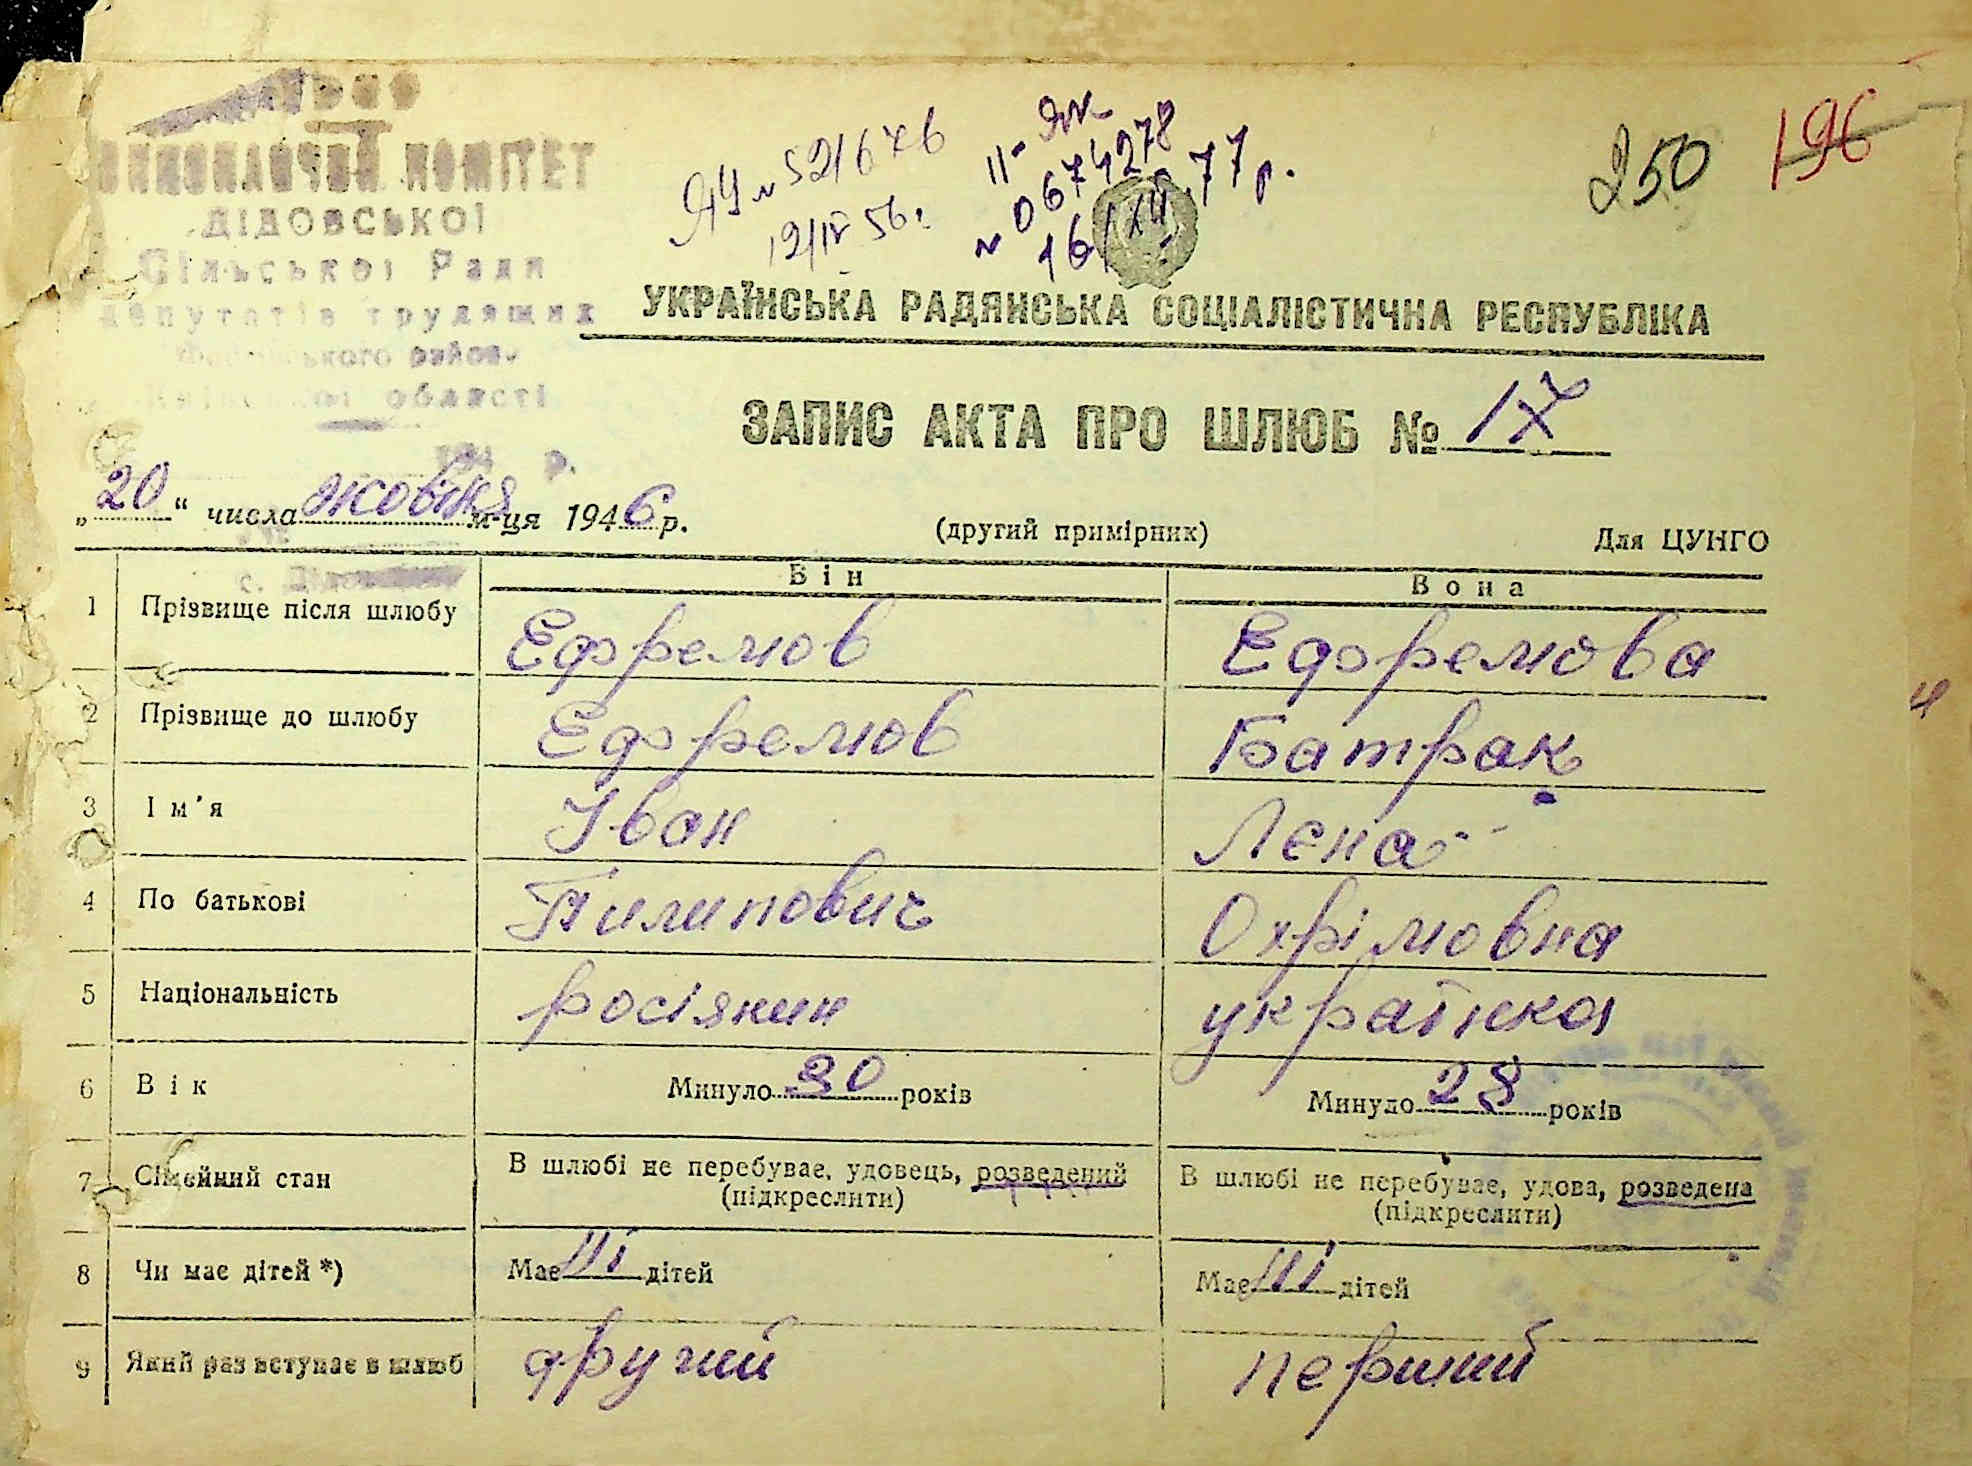 ВИКОНАВЧИЙ КОМІТЕТ
ДІДОВСЬКОЇ
Сільської Ради
депутатів трудящих
району
області
194 р.
ЯЧ № 521676
12/IV 56 р.
II-ЯК
№ 0674278
16/XII.77 р.
250
196
УКРАЇНСЬКА РАДЯНСЬКА СОЦІАЛІСТИЧНА РЕСПУБЛІКА
ЗАПИС АКТА ПРО ШЛЮБ № 17
„20“ числа жовтня м-ця 1946 р.
(другий примірник)
Для ЦУНГО
Він
Вона
1 Прізвище після шлюбу Ефремов Ефремова
2 Прізвище до шлюбу Ефремов Батрак
3 Ім'я Іван Лена
4 По батькові Пилипович Охрімовна
5 Національність росіянин українка
6 Вік Минуло 30 років Минуло 28 років
7 Сімейний стан В шлюбі не перебуває, удовець, розведений В шлюбі не перебуває, удова, розведена
(підкреслити) (підкреслити)
8 Чи має дітей *) Має дітей Має дітей
9 Який раз вступає в шлюб другий перший